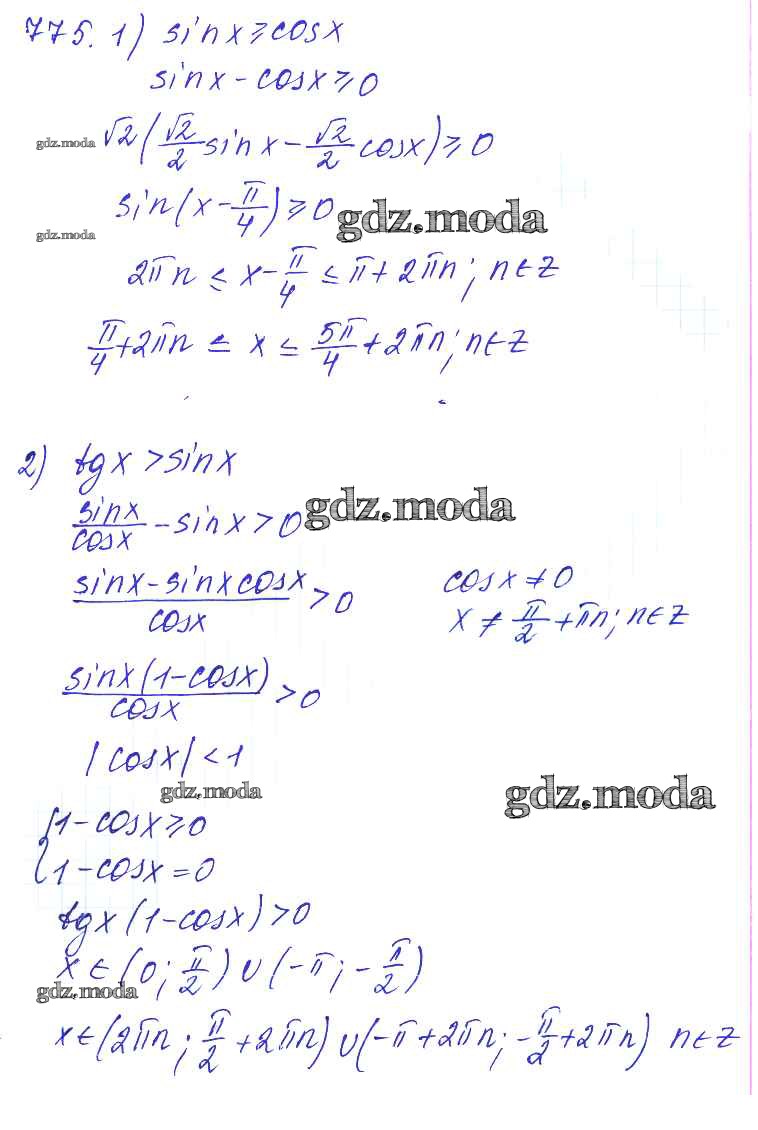 775. 1) sinx ≥ cosx
sinx - cosx ≥ 0
gdz.moda √2(√2/2 sinx - √2/2 cosx) ≥ 0
sin(x - π/4) ≥ 0 gdz.moda
gdz.moda
2πn ≤ x - π/4 ≤ π + 2πn; n∈Z
π/4 + 2πn ≤ x ≤ 5π/4 + 2πn; n∈Z
2) tgx > sinx
sinx/cosx - sinx > 0 gdz.moda
(sinx - sinx cosx)/cosx > 0
cosx ≠ 0
x ≠ π/2 + πn; n∈Z
sinx(1 - cosx)/cosx > 0
|cosx| < 1
gdz.moda gdz.moda
{1 - cosx ≥ 0
1 - cosx = 0
tgx(1 - cosx) > 0
x ∈ (0; π/2) ∪ (-π; -π/2)
gdz.moda
x ∈ (2πn; π/2 + 2πn) ∪ (-π + 2πn; -π/2 + 2πn) n∈Z